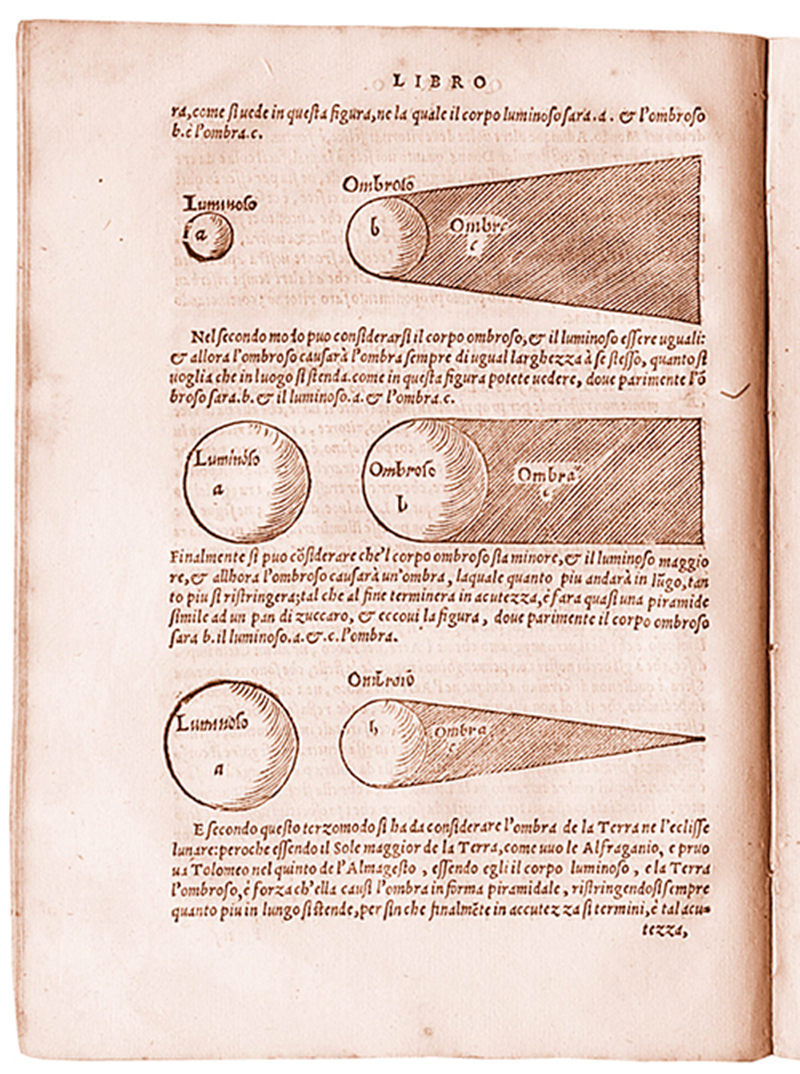 LIBRO
ra, come si uede in questa figura, ne la quale il corpo luminoso sarà .a. & l'ombroso
b. è l'ombra. c.
Luminoso
a
Ombroso
b
Ombra
c
Nel secondo modo puo considerarsi il corpo ombroso, & il luminoso essere uguali:
& allora l'ombroso causarà l'ombra sempre di ugual larghezza à se stesso, quanto si
uoglia che in luogo si stenda. come in questa figura potete uedere, doue parimente l'ō
broso sara .b. & il luminoso .a. & l'ombra. c.
Luminoso
a
Ombroso
b
Ombra
c
Finalmente si puo cōsiderare che'l corpo ombroso sia minore, & il luminoso maggio
re, & allhora l'ombroso causarà un'ombra, laquale quanto piu andarà in lūgo, tan
to piu si ristringera; tal che al fine terminera in acutezza, è fara quasi una piramide
simile ad un pan di zuccaro, & eccoui la figura, doue parimente il corpo ombroso
sara b. il luminoso .a. & .c. l'ombra.
Luminoso
a
Ombroso
b
Ombra
c
E secondo questo terzo modo si ha da considerare l'ombra de la Terra ne l'eclisse
lunare: peroche essendo il Sole maggior de la Terra, come uuo le Alfraganio, e pruo
ua Tolomeo nel quinto de l'Almagesto, essendo egli il corpo luminoso, e la Terra
l'ombroso, è forza ch'ella causi l'ombra in forma piramidale, ristringendosi sempre
quanto piu in lungo si stende, per sin che finalmēte in accutezza si termini, è tal acu-
tezza,